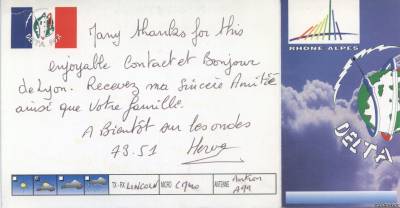 Many thanks for this
enjoyable Contact et Bonjour
de Lyon. Recevez ma Sincère Amitié
ainsi que votre famille.
A Bientôt sur les ondes
73.51 Herve
TX-RX LINCOLN MICRO ANTENNE Antron
A99
RHONE ALPES
DELTA